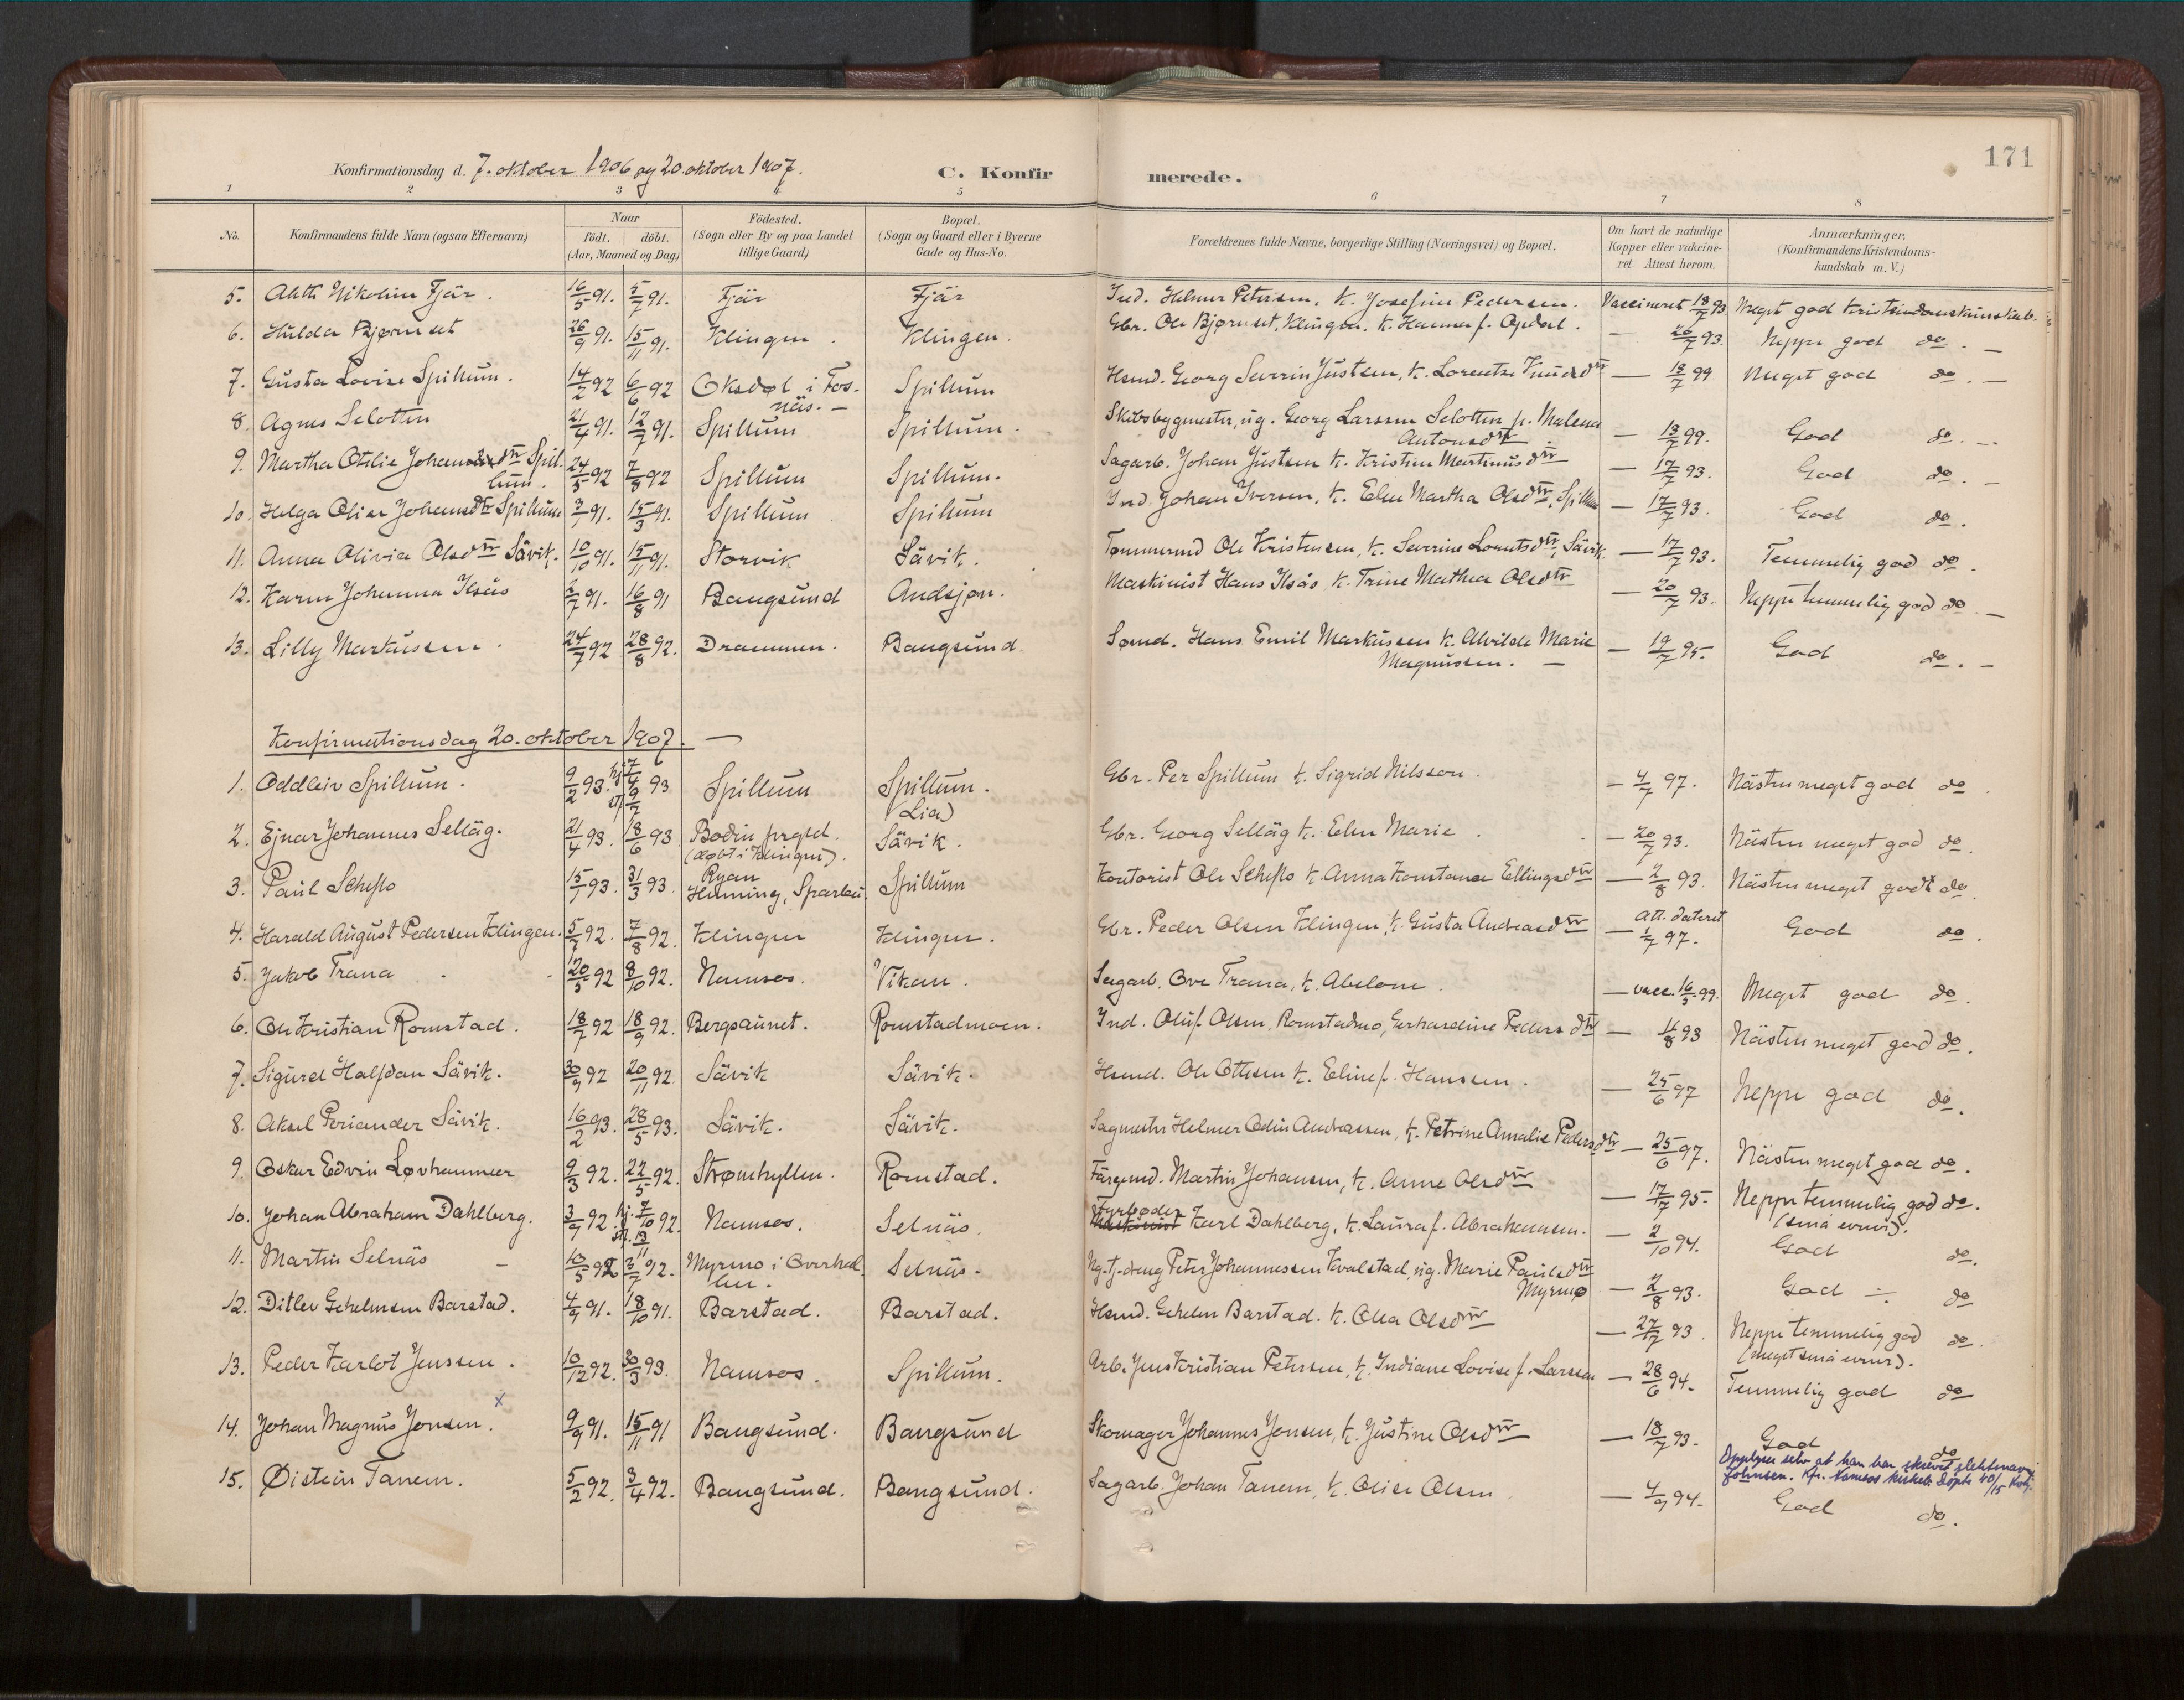 171
Konfirmationsdag d. 7. oktober 1906 og 20. oktober 1907.
C. Konfirmerede.
1 2 3 4 5 6 7 8
No. Konfirmandens fulde Navn (ogsaa Efternavn) Naar födt. döbt. (Aar, Maaned og Dag) Födested. (Sogn eller By og paa Landet tillige Gaard) Bopæl. (Sogn og Gaard eller i Byerne Gade og Hus-No. Forældrenes fulde Navne, borgerlige Stilling (Næringsvei) og Bopæl. Om havt de naturlige Kopper eller vakcineret. Attest herom. Anmærkninger. (Konfirmandens Kristendomskundskab m. V.)
5. Nikoline Fjär. 16/5 91. 5/7 91. Fjär Fjär Ind. Helmer Petersen, k. Josefine Pedersen. Vaccineret 18/7 93 Meget god kristendomskundskab.
6. Hulda Bjørnset 26/9 91. 15/11 91. Klingen. Klingen. Gbr. Ole Bjørnset, Klingen. k. Hanna f. Opdal. — 20/7 93. Neppe god do. —
7. Gusta Lovise Spillum. 14/2 92 6/6 92 Oksdøl i Fosnäs. — Spillum Hsmd. Georg Severin Justsen, k. Lorentse Knudsdtr — 18/7 99 Meget god do. —
8. Agnes Selotten 21/4 91. 12/7 91. Spillum Spillum. Skibsbygmester, ug. Georg Larssen Selotten, p. Malena Antonsdtr — 13/7 99. God do. —
9. Martha Otilie Johansdtr Spillum. 24/5 92 7/8 92 Spillum Spillum. Sagarb. Johan Justsen k. Kristine Martinusdtr — 17/7 93. God do. —
10. Helga Olise Johansdtr Spillum 3/1 91. 15/3 91. Spillum Spillum Ind. Johan Iversen, k. Elen Martha Olsdtr, Spillum — 17/7 93. God do.
11. Anna Olivia Olsdtr Sävik. 10/10 91. 15/11 91. Storvik Sävik. Tømmermd Ole Kristensen, k. Severine Lorntsdtr, Sävik — 17/7 93. Temmelig god do.
12. Karen Johanna Ilsäs 2/7 91. 16/8 91 Bangsund Andsjøn. Maskinist Hans Ilsås k. Trine Mathea Olsdtr — 20/7 93. Neppe temmelig god do —
13. Lilly Markussen. 24/7 92 28/8 92. Drammen. Bangsund Sømd. Hans Emil Markussen k. Alvilde Marie Magnussen. — — 19/7 95. God do. —
Konfirmationsdag 20. oktober 1907. —
1. Oddleiv Spillum. 9/2 93. hj 7/4 st 9/7 93 Spillum Spillum. (Lia) Gbr. Per Spillum k. Sigrid Nilsson. — 4/7 97. Nästen meget god do.
2. Ejnar Johannes Selläg. 21/4 93. 18/6 93 Bodin prgld. (døbt i Klingen). Sävik. Gbr. Georg Selläg k. Elen Marie. — 20/7 93. Nästen meget god do.
3. Paul Scheflo 15/1 93. 31/3 93. Ryan Henning, Sparbu. Spillum Kontorist Ole Scheflo k. Anna Konstanse Ellingsdtr — 2/8 93. Nästen meget godt do
4. Harald August Pedersen Klingen. 5/7 92. 7/8 92. Klingen Klingen. Gbr. Peder Olsen Klingen, k. Gusta Andreasdtr — Att. dateret 1/7 97. God do.
5. Jakob Trana. 20/5 92 8/10 92. Namsos. Vikan. Sagarb. Ove Trana, k. Abelone. — vacc. 16/5 99. Meget god do.
6. Ole Kristian Romstad. 18/7 92 18/9 92. Bergsaunet. Romstadmoen. Ind. Oluf Olsen, Romstadmo, Gerhardine Pedersdtr — 11/8 93 Nästen meget god do.
7. Sigurd Halfdan Sävik. 30/9 92 20/11 92 Sävik Sävik. Hsmd. Ole Ottesen k. Eline f. Hanssen. — 25/6 97 Neppe god do.
8. Aksel Periander Sävik. 16/2 93. 28/5 93. Sävik. Sävik. Sagmester Helmer Odin Andreassen, k. Petrine Amalie Pedersdtr — 25/6 97. Nästen meget god do.
9. Oskar Edvin Løvhammer 9/3 92. 22/5 92. Strømhyllen. Romstad. Färgemd. Martin Johansen, k. Anne Olsdtr — 17/7 95 Neppe temmelig god do. (små evner).
10. Johan Abraham Dahlberg. 3/9 92. hj. 7/10 st. 13/11 92. Namsos. Selnäs. Fyrbøder Karl Dahlberg, k. Laura f. Abrahamsen. — 2/10 94. God do.
11. Martin Selnäs — 10/5 92 3/7 92. Myrmo i Overhallen. Selnäs. Ug. tj.dreng Peter Johannessen Kvalstad, ug. Marie Paulsdtr Myrmo — 2/8 93. God ÷ do
12. Ditlev Gehelmsen Barstad. 4/9 91. 18/10 91. Barstad. Barstad. Hsmd. Gehelm Barstad. k. Olea Olsdtr — 27/7 93. Neppe temmelig god do. (meget små evner).
13. Peder Karlot Jenssen. 10/12 92. 30/3 93. Namsos. Spillum. Arb. Jens Kristian Petersen, k. Indiane Lovise f. Larssen — 28/6 94. Temmelig god do
14. Johan Magnus Jonsen. x 9/9 91. 15/11 91 Bangsund. Bangsund Skomager Johannes Jonsen, k. Justine Olsdtr — 18/7 93. God do
Opplyser selv at han har skrevet slektsnavn Johnsen. Kfr. Namsos kirkeb. døpte 40/15
15. Øistein Tanem. 5/2 92. 3/4 92. Bangsund. Bangsund. Sagarb. Johan Tanem, k. Olise Olsen — 4/9 94. God do.